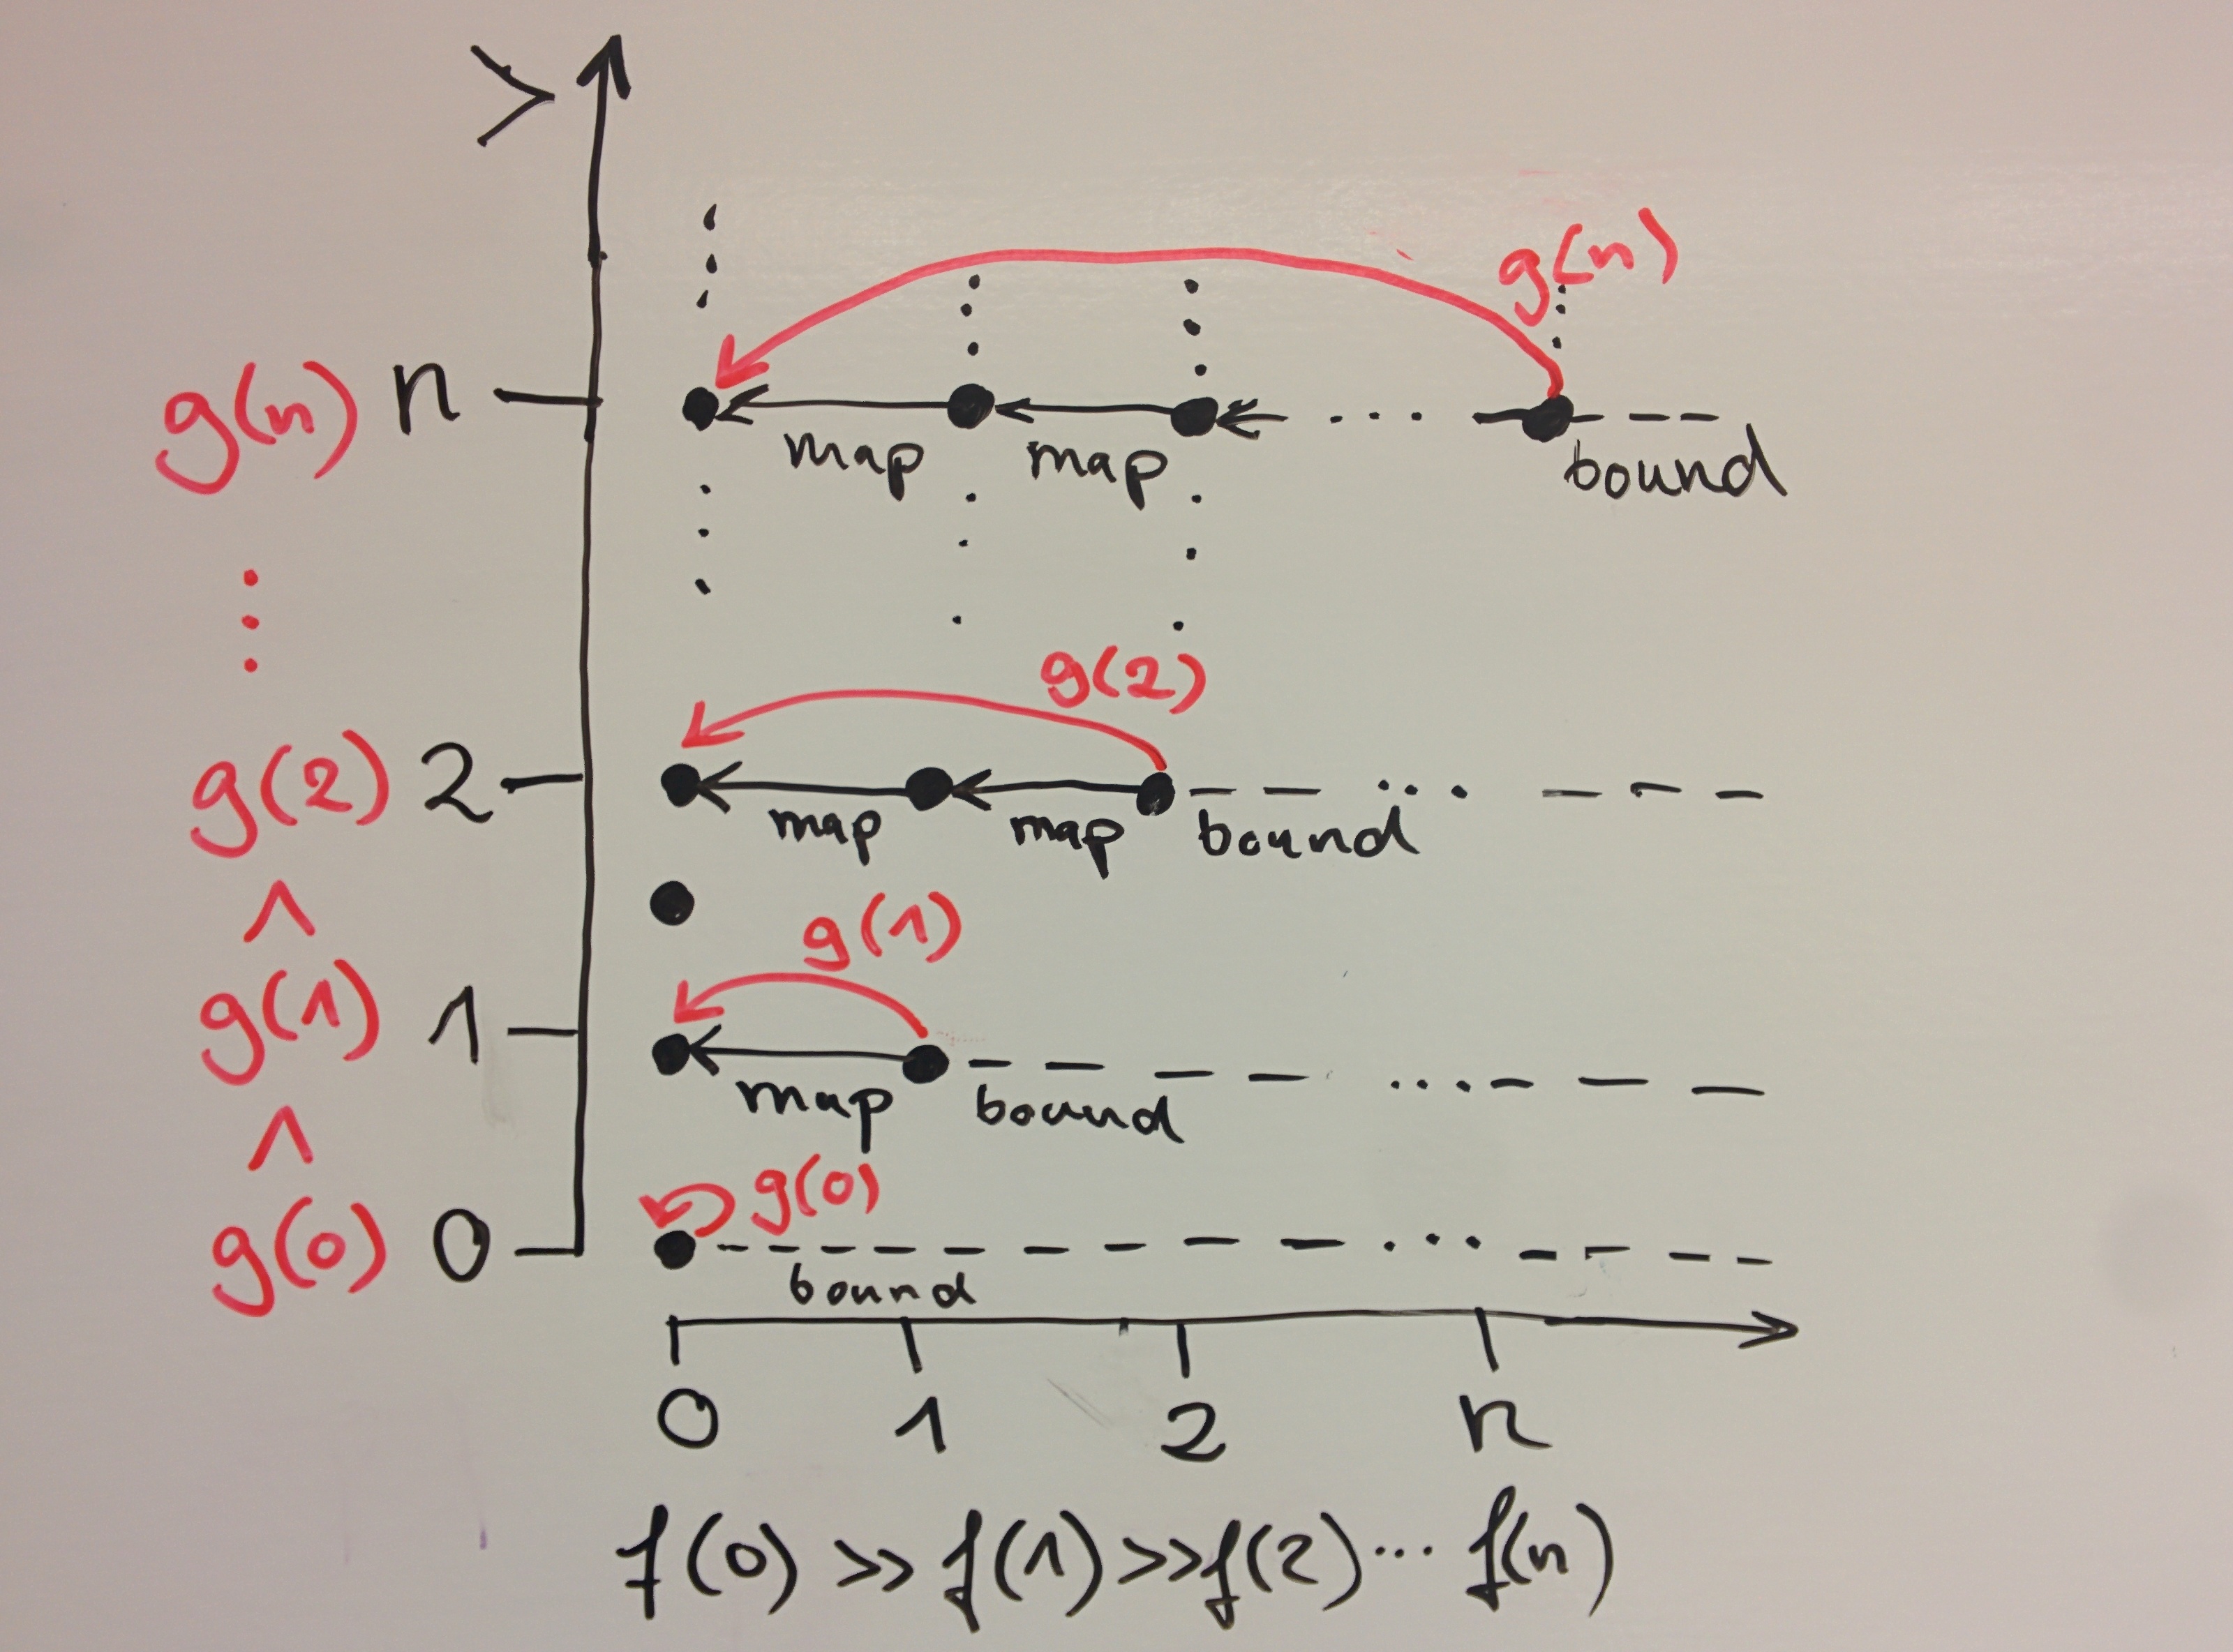 >
g(n)
g(n) n
map map bound
⋮
g(2)
g(2) 2
map map bound
^
g(1)
g(1) 1
map bound
^
g(0)
g(0) 0
bound
0 1 2 n
f(0) >> f(1) >> f(2) ... f(n)